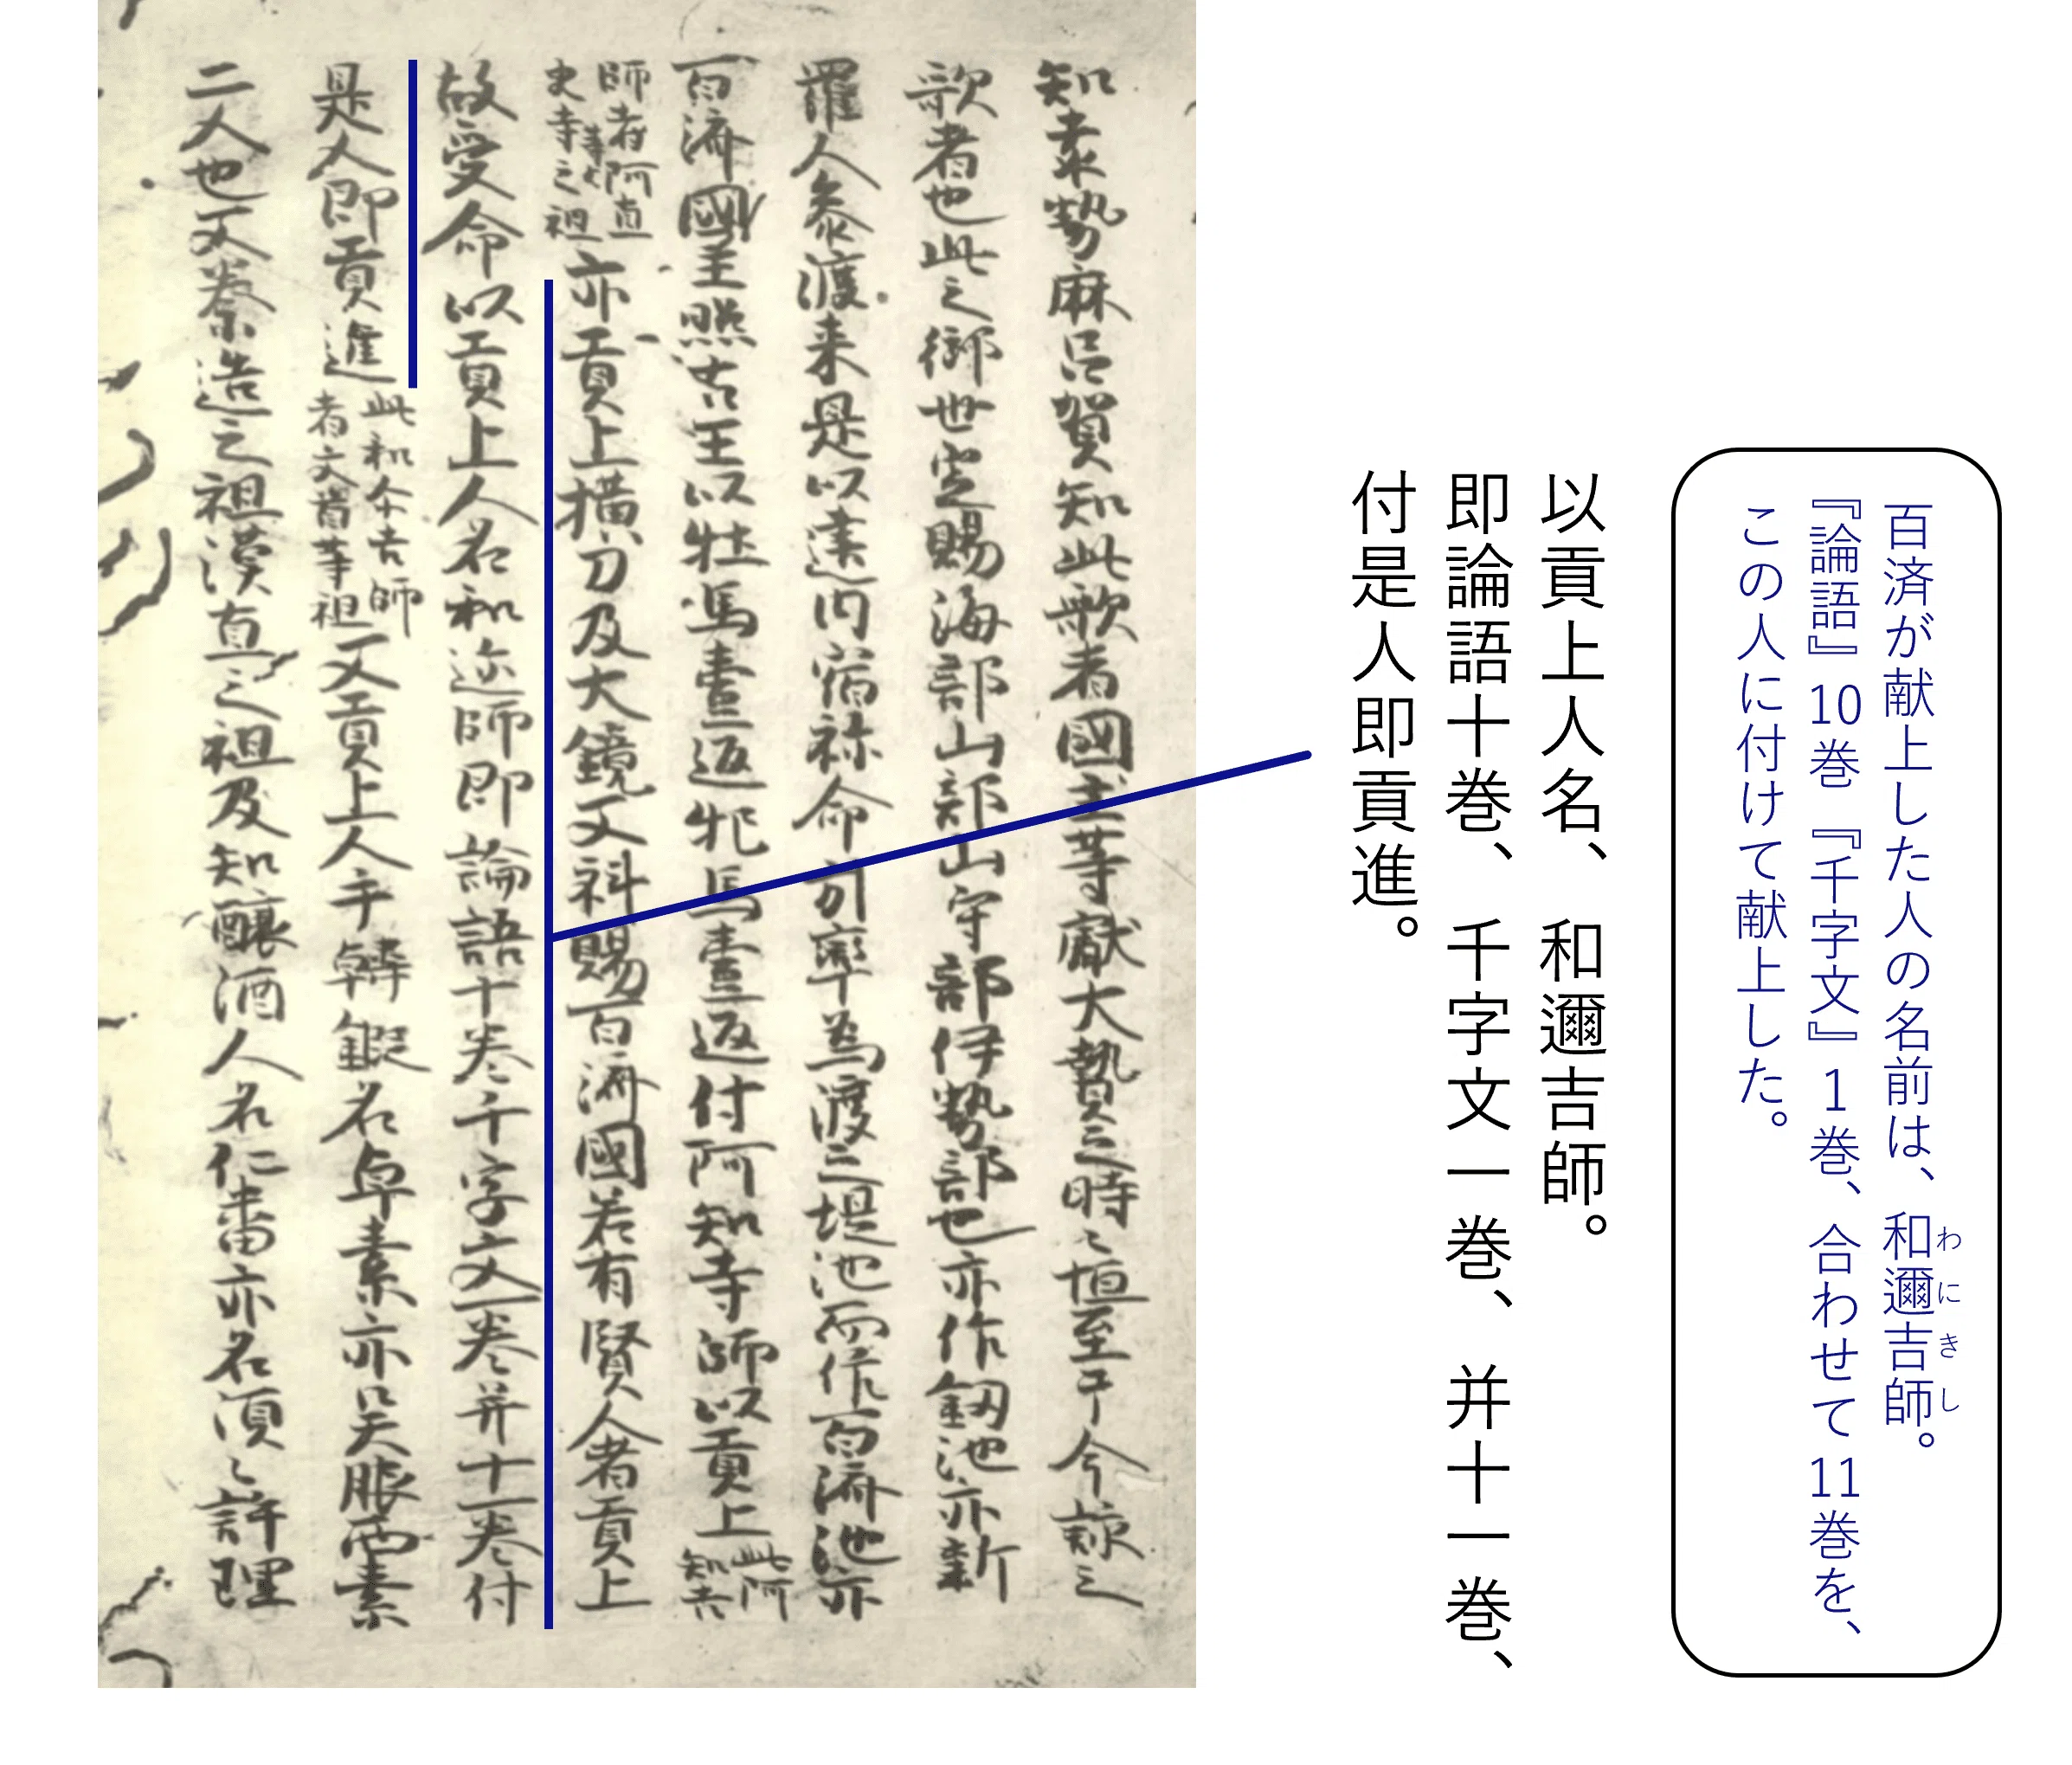 百済が献上した人の名前は、和邇吉師。
わにきし
『論語』10巻『千字文』1巻、合わせて11巻を、
この人に付けて献上した。
以貢上人名、和邇吉師。
即論語十巻、千字文一巻、并十一巻、
付是人即貢進。
知袁勢麻呂賀知此歌者國主等獻大贄之時〻恒至于今詠之
歌者也此之御世定賜海部山部山守部伊勢部也亦作劔池亦新
羅人参渡来是以建内宿祢命引率為渡之堤池而作百濟池亦
百濟國主照古王以牡馬壹返牝馬壹返付阿知寺師以貢上此阿知吉
師者阿直史寺之祖亦貢上横刀及大鏡又科賜百濟國若有賢人者貢上
故受命以貢上人名和迩師即論語十巻千字文一巻并十一巻付
是人即貢進此和尓吉師者文首等祖又貢上人手韓鍛名卓素亦呉服西素
二人也又秦造之祖漢直之祖及知釀酒人名仁番亦名須〻許理